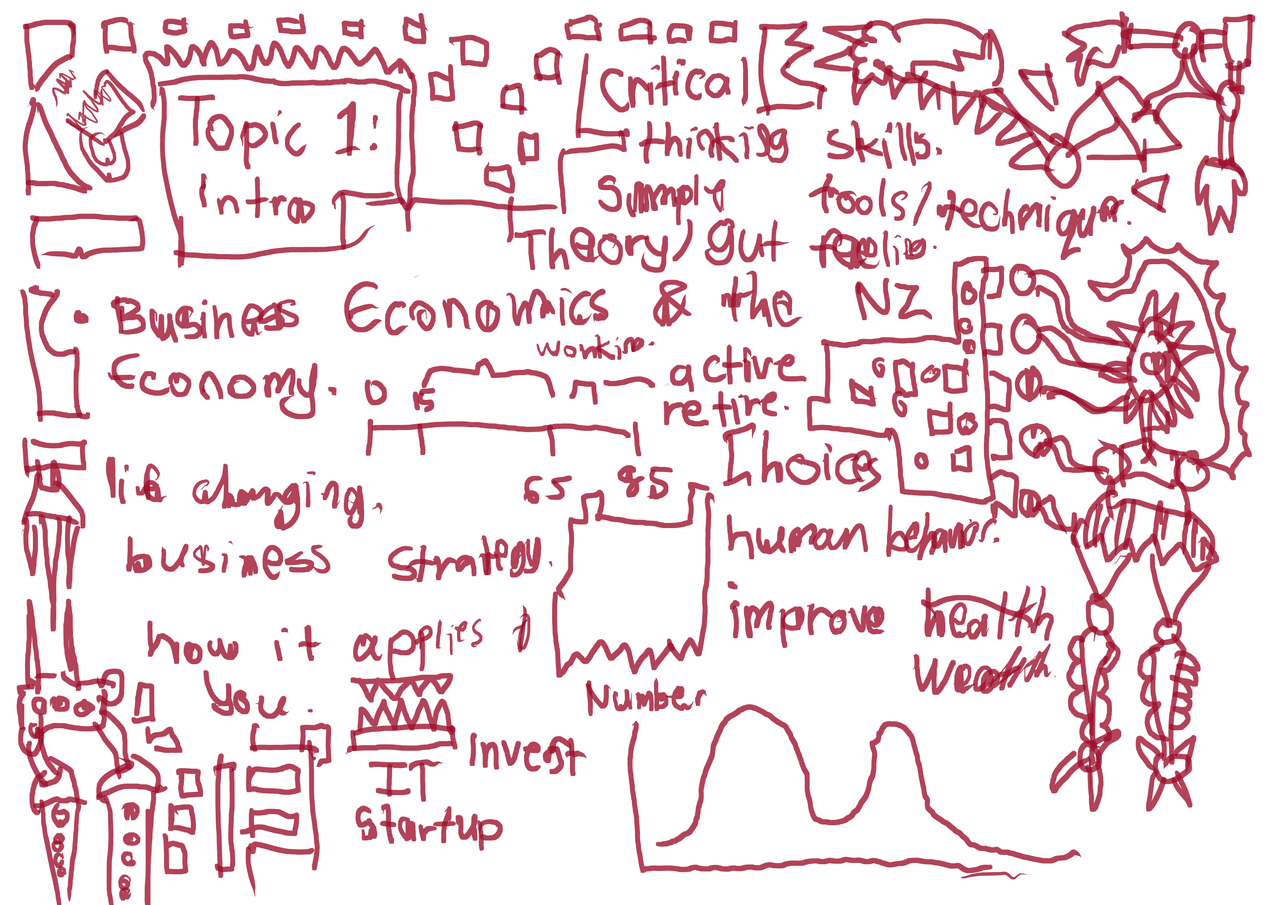 Topic 1:
Intro
Critical
thinking skills.
Simple tools/techniques.
Theory/gut feeling.
Business Economics & the NZ
Economy.
working.
0 15
65 85
active
retire.
life changing.
business strategy.
how it applies
you.
Choices
human behavior.
improve health
wealth.
Number
invest
IT
Startup